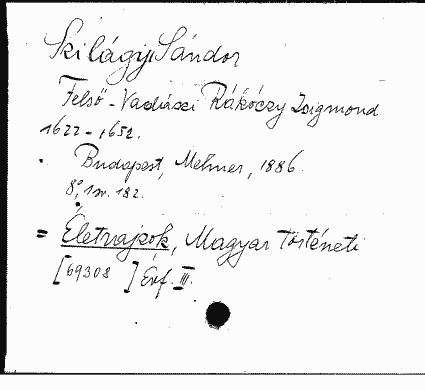 Szilágyi Sándor
Felső-Vadászi Rákóczy Zsigmond
1622-1652.
Budapest, Mehner, 1886.
8°, 1 sv. 182.
= Életrajzok, Magyar Történeti
[69308 ] Évf. III.